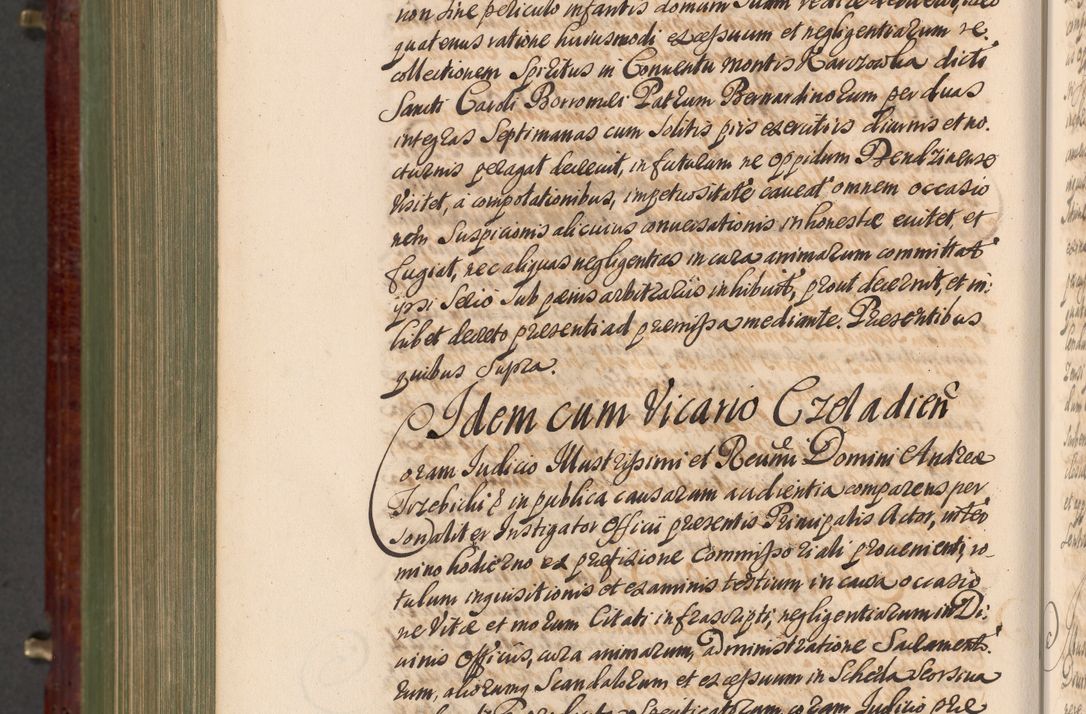 non sine periculo infantis domum suam redire
quatenus ratione huiusmodi excessuum et negligentiarum re.
collectionem Spiritus in Conventu montis Karczowka dicti
Sancti Caroli Borromei Patrum Bernardinorum per duas
integras Septimanas cum solitis piis exercitiis diurnis et no.
cturnis peragat decrevit, in futurum ne oppidum Bendzinense
visitet, a compotationibus, impetuositate caveat omnem occasio
nem suspicionis alicuius conversationis inhonestæ evitet, et
fugiat, nec aliquas negligentias in cura animarum committat
ipsi serio sub pœnis arbitrariis inhibuit, prout decernit, et in:
hibet decreto præsenti ad præmissa mediante. Præsentibus
quibus supra.
Idem cum Vicario Czeladien
Coram Judicio Illustrissimi et Reverendissimi Domini Andreæ
Trzebicki & in publica causarum audientia comparens per
sonaliter Instigator Officii præsentis Principalis Actor, in ter
mino hodierno ex præfixione Commissoriali proveniente, ro
tulum inquisitionis et examinis testium in causa occasio
ne Vitæ et morum Citati infrascripti, negligentiarum in Di:
vinis Officiis, cura animarum, administratione Sacrament.
rum, aliorumq Scandalorum et excessuum in Scheda seorsiva
coram Judicio præ